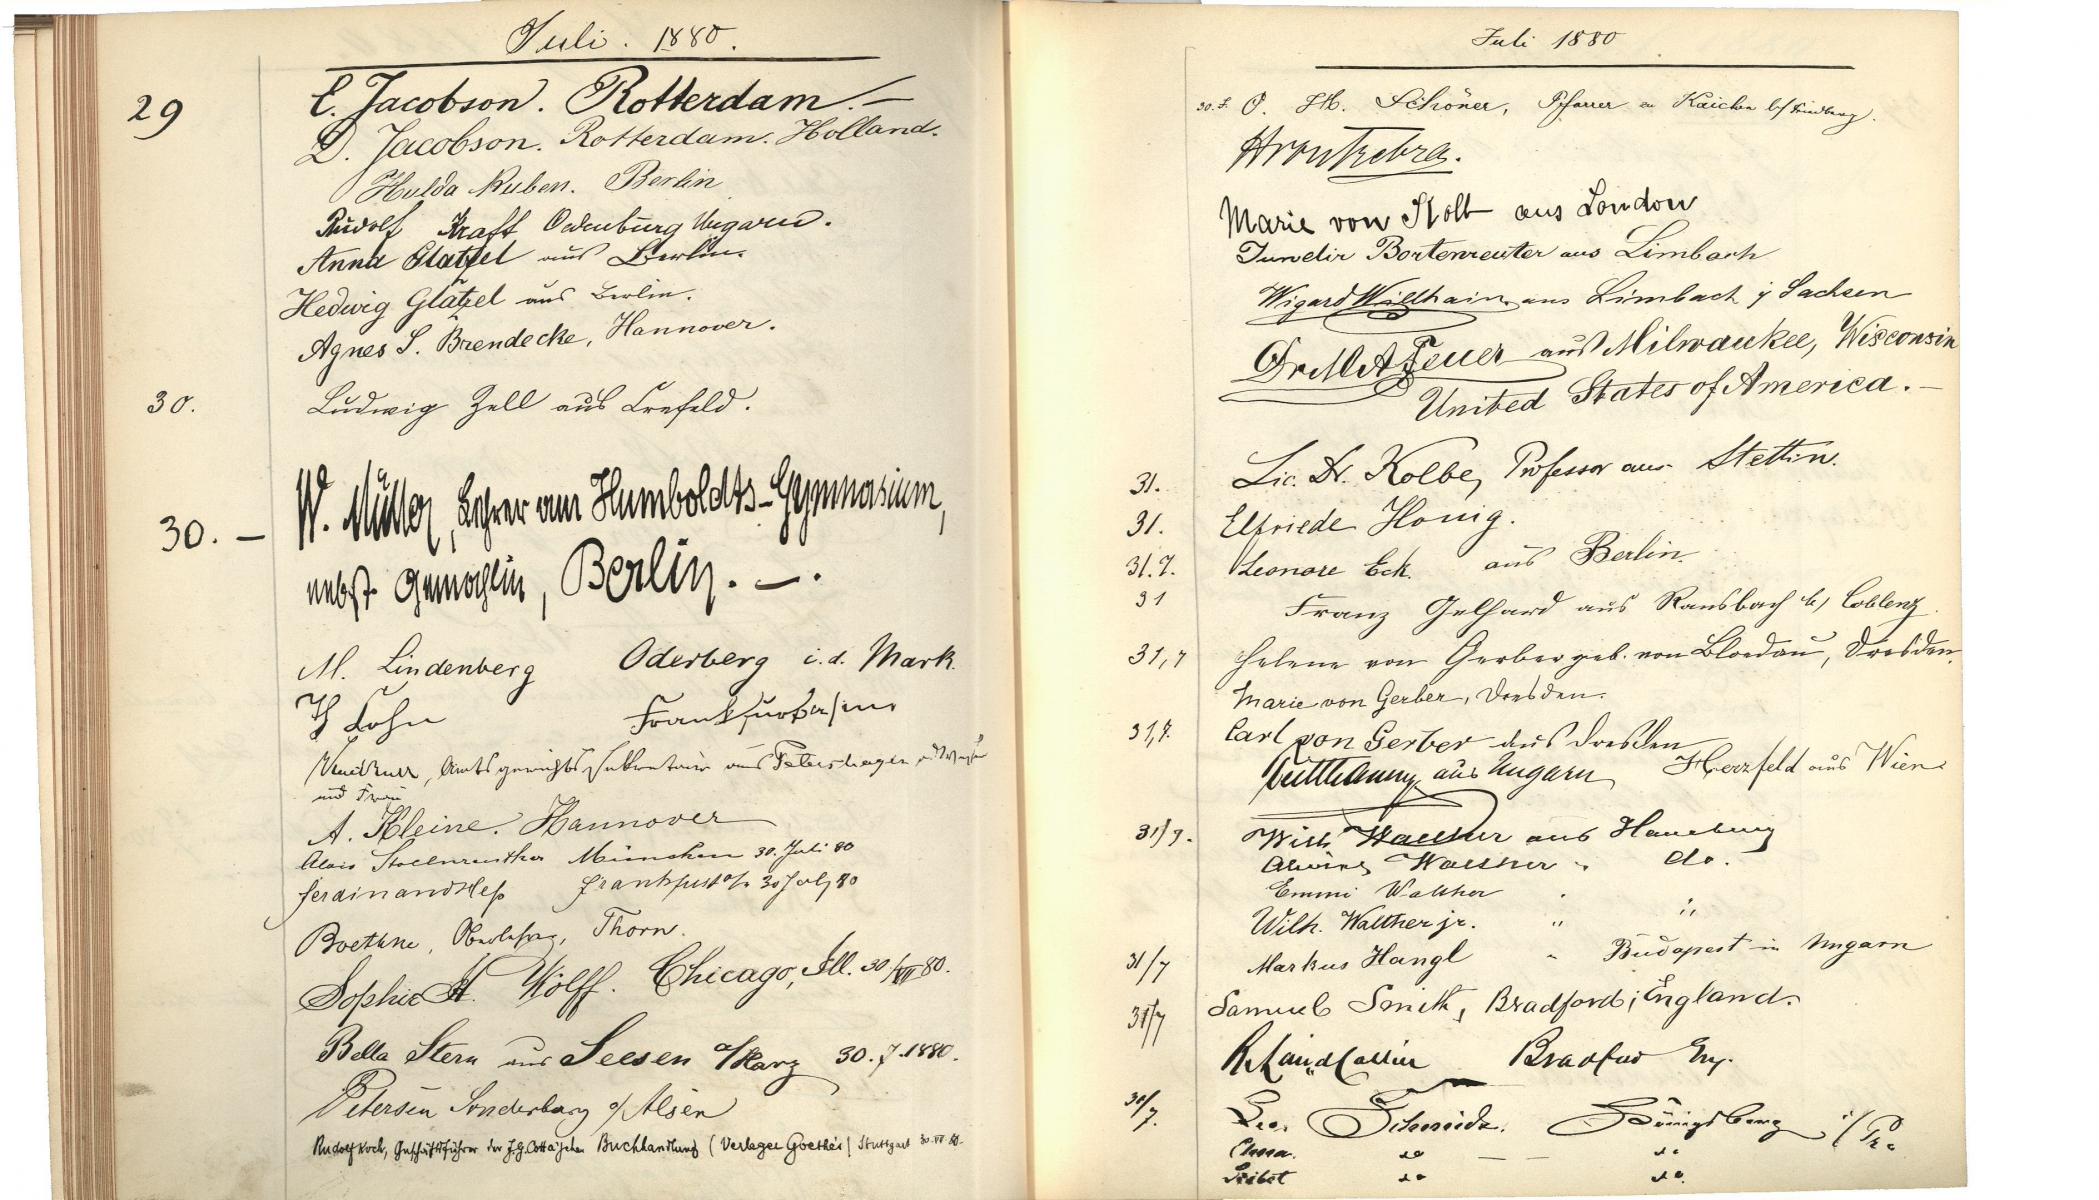 Juli. 1880.
29
E. Jacobson. Rotterdam. —
D. Jacobson. Rotterdam. Holland.
Hulda Ruben. Berlin
Rudolf Kraft Oedenburg Ungarn.
Anna Glatzel aus Berlin.
Hedwig Glatzel aus Berlin.
Agnes S. Brendecke, Hannover.
30. Ludwig Zell aus Crefeld.
30. — W. Müller, Lehrer am Humboldts-Gymnasium,
nebst Gemahlin, Berlin. —.
M. Lindenberg Oderberg i. d. Mark.
Cohn Frankfurt a/m
Amtsgerichts aus Petershagen
und Frau
A. Kleine. Hannover
Alois München 30. Juli 80
Ferdinand Heß Frankfurt a/m 30 July 80
Boethke, Thorn.
Sophie H. Wolff. Chicago, Ill. 30/VII 80.
Bella Stern aus Seesen a/Harz 30. 7. 1880.
Petersen Sonderburg a/ Alsen
Rudolf Koch, Geschäftsführer der J. G. Cotta'schen Buchhandlung (Verleger Goethes) Stuttgart 30. VII 80.
Juli 1880
30. J. O. Schöner, Pfarrer zu Kaichen b/ Friedberg.
Marie von Kolb aus London
Bortenreuter aus Limbach
Wigard Willhain aus Limbach i/ Sachsen
Dr M A Feuer aus Milwaukee, Wisconsin
United States of America. —
31. Lic. Dr. Kolbe, Professor aus Stettin.
31. Elfriede Honig.
31. 7. Leonore Eck. aus Berlin.
31 Franz Gelhard aus Ransbach b/ Coblenz.
31,7 Helene von Gerber geb. von Bloedau, Dresden.
Marie von Gerber, Dresden.
31,7. Carl von Gerber aus Dresden
aus Ungarn Herzfeld aus Wien
31/7. Wilh Walther aus Hamburg
Walther " do.
Emmi Walther
Wilh. Walther jr. " "
31/7 Markus Hangl " Budapest in Ungarn
31/7 Samuel Smith, Bradford; England.
Bradford Eng.
31/7. Leo. Schmidt. Königsberg i/ Pr.
Clara. do — — do
do do.